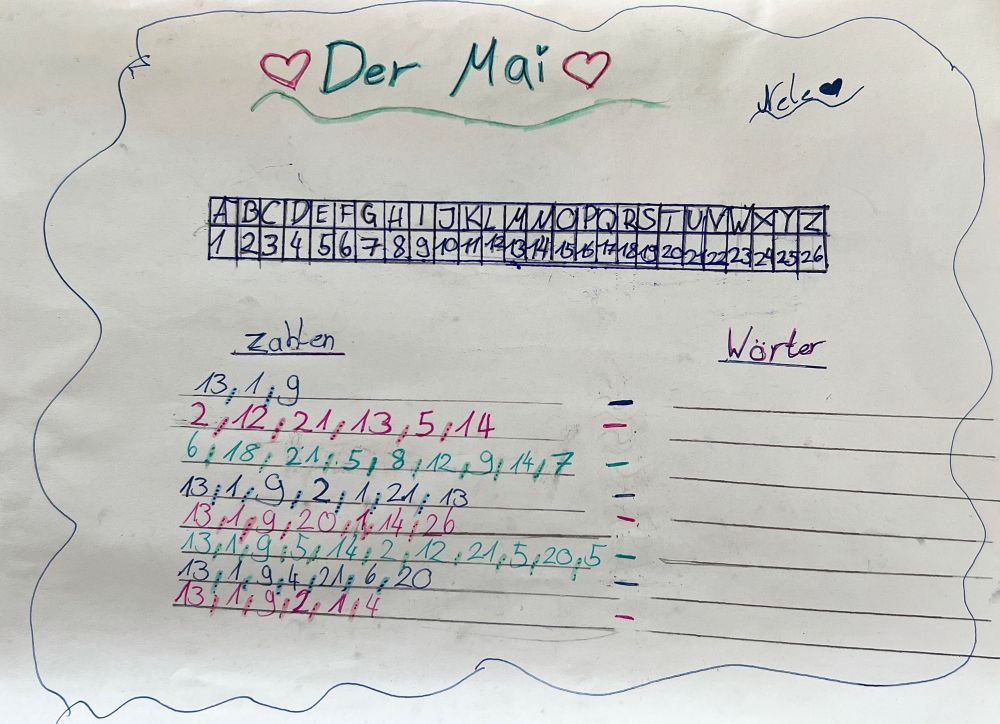 Der Mai
Nele
A B C D E F G H I J K L M N O P Q R S T U V W X Y Z
1 2 3 4 5 6 7 8 9 10 11 12 13 14 15 16 17 18 19 20 21 22 23 24 25 26
Zahlen
Wörter
13, 1, 9 -
2, 12, 21, 13, 5, 14 -
6, 18, 21, 5, 8, 12, 9, 14, 7 -
13, 1, 9, 2, 1, 21, 13 -
13, 1, 9, 20, 1, 14, 26 -
13, 1, 9, 5, 14, 2, 12, 21, 5, 20, 5 -
13, 1, 9, 4, 21, 6, 20 -
13, 1, 9, 2, 1, 4 -